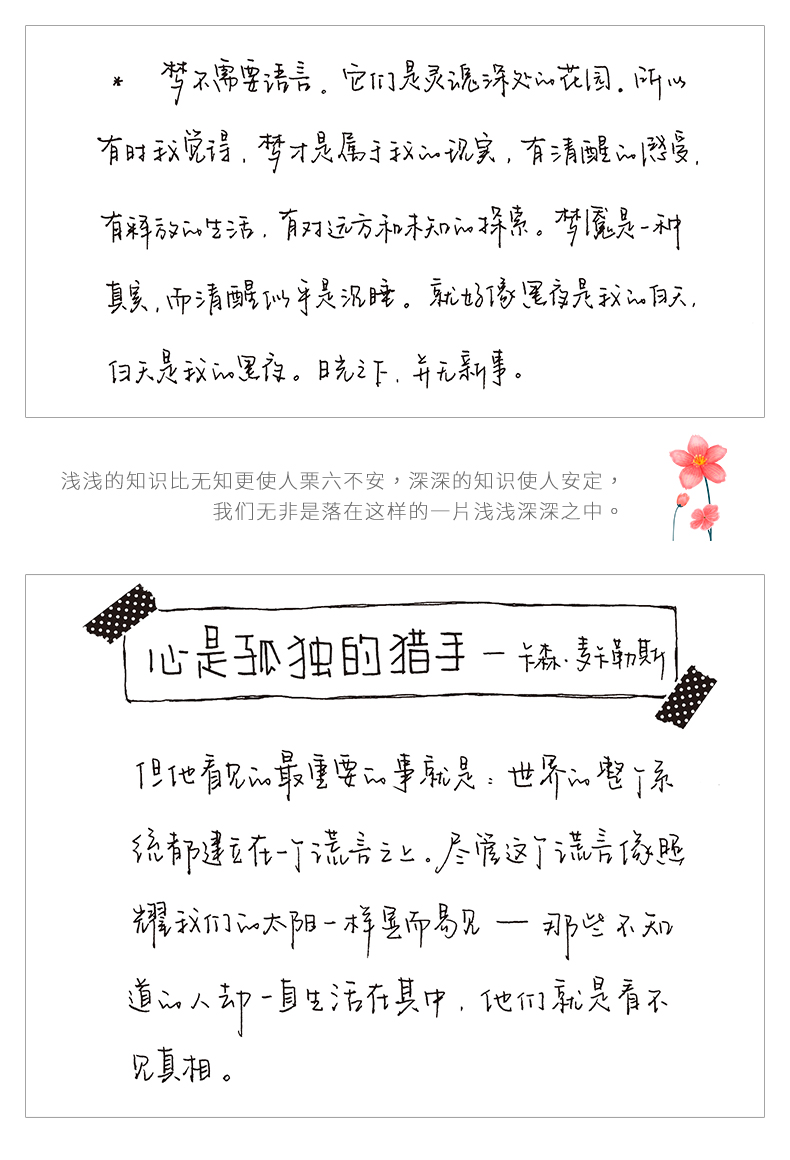 * 梦不需要语言。它们是灵魂深处的花园.所以
有时我觉得,梦才是属于我的现实,有清醒的感受,
有释放的生活,有对远方和未知的探索。梦魇是一种
真实,而清醒似乎是沉睡。就好像黑夜是我的白天,
白天是我的黑夜。日光之下,并无新事。
浅浅的知识比无知更使人栗六不安，深深的知识使人安定，
我们无非是落在这样的一片浅浅深深之中。
心是孤独的猎手 — 卡森·麦卡勒斯
但他看见的最重要的事就是：世界的整个系
统都建立在一个谎言之上。尽管这个谎言像照
耀我们的太阳一样显而易见 — 那些不知
道的人却一直生活在其中,他们就是看不
见真相。